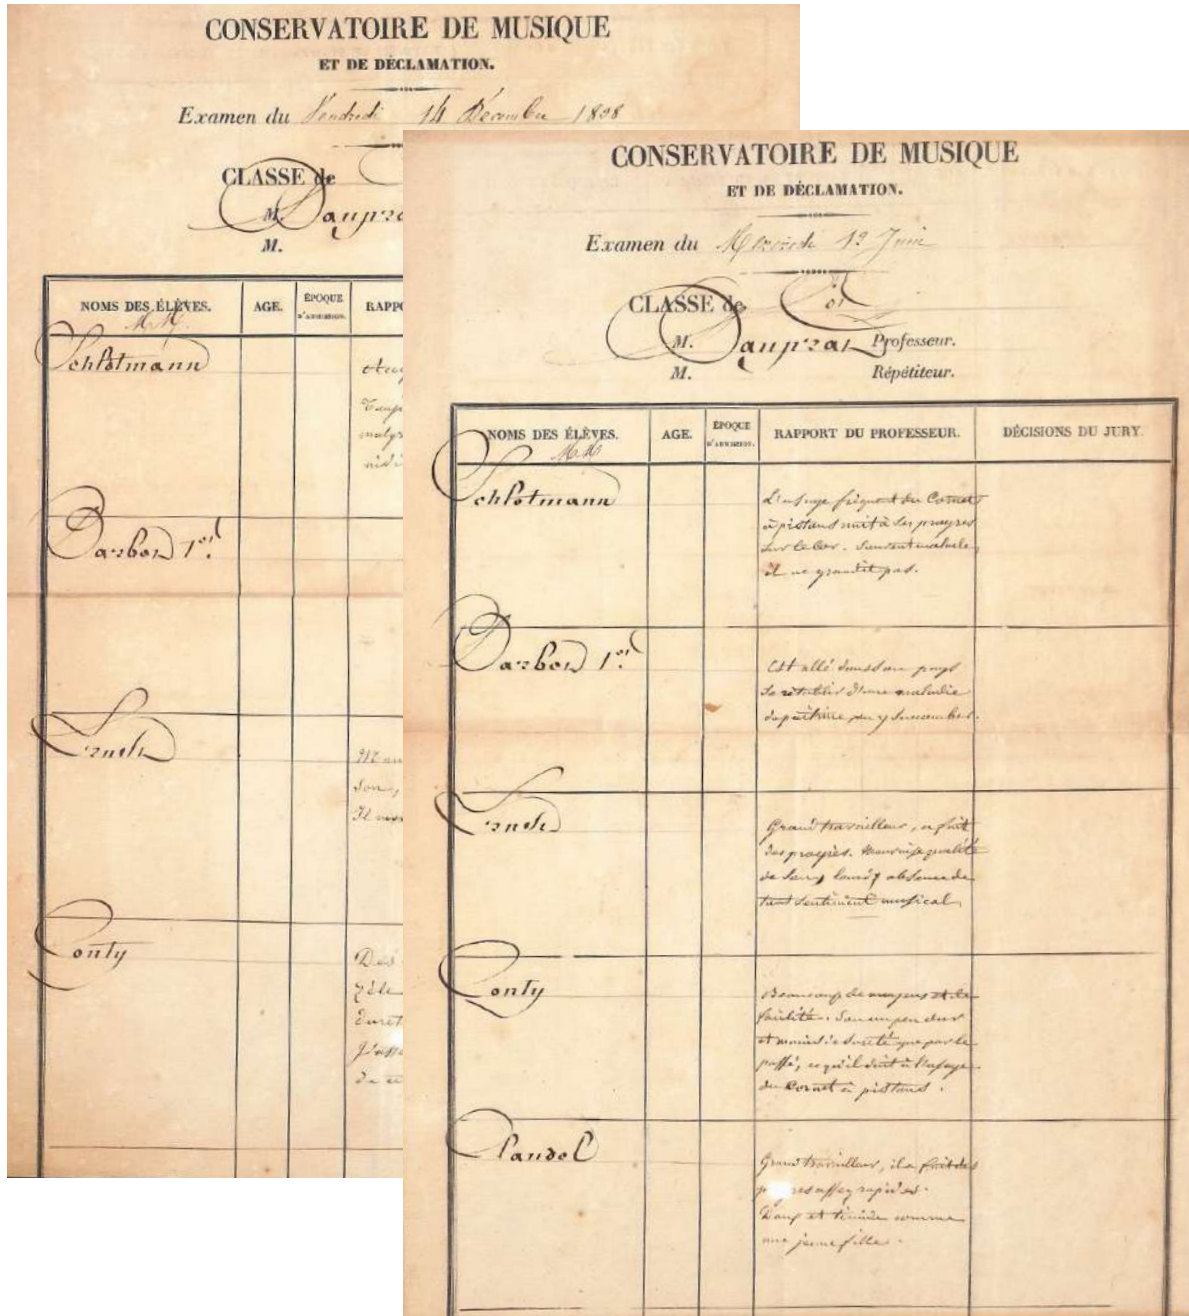 CONSERVATOIRE DE MUSIQUE
ET DE DÉCLAMATION.
Examen du Vendredi 14 Décembre 1838
CLASSE de
M. Dauprat
M.
NOMS DES ÉLÈVES. AGE. ÉPOQUE D'ADMISSION. RAPPO
MM.
Schlotmann
Darbon 1er
malgr
Ernest
Son,
Il
Conty
Des
zèle
duret
CONSERVATOIRE DE MUSIQUE
ET DE DÉCLAMATION.
Examen du Mercredi 12 Juin
CLASSE de Cor
M. Dauprat Professeur.
M. Répétiteur.
NOMS DES ÉLÈVES. AGE. ÉPOQUE D'ADMISSION. RAPPORT DU PROFESSEUR. DÉCISIONS DU JURY.
MM.
Schlotmann
L'usage fréquent du Cornet
à pistons nuit à ses progrès
sur le Cor. Souvent malade,
il ne grandit pas.
Darbon 1er
Est allé dans son pays
se rétablir d'une maladie
de poitrine
Ernest
Grand travailleur, a fait
des progrès. Mauvaise qualité
de Son, absence de
tout sentiment musical.
Conty
Beaucoup de moyens et de
facilité. Son un peu dur
et moins de sureté que par le
passé, ce qu'il doit à l'usage
du Cornet à pistons.
Claudel
Grand travailleur, il a fait des
progrès assez rapides.
Doux et timide comme
une jeune fille.